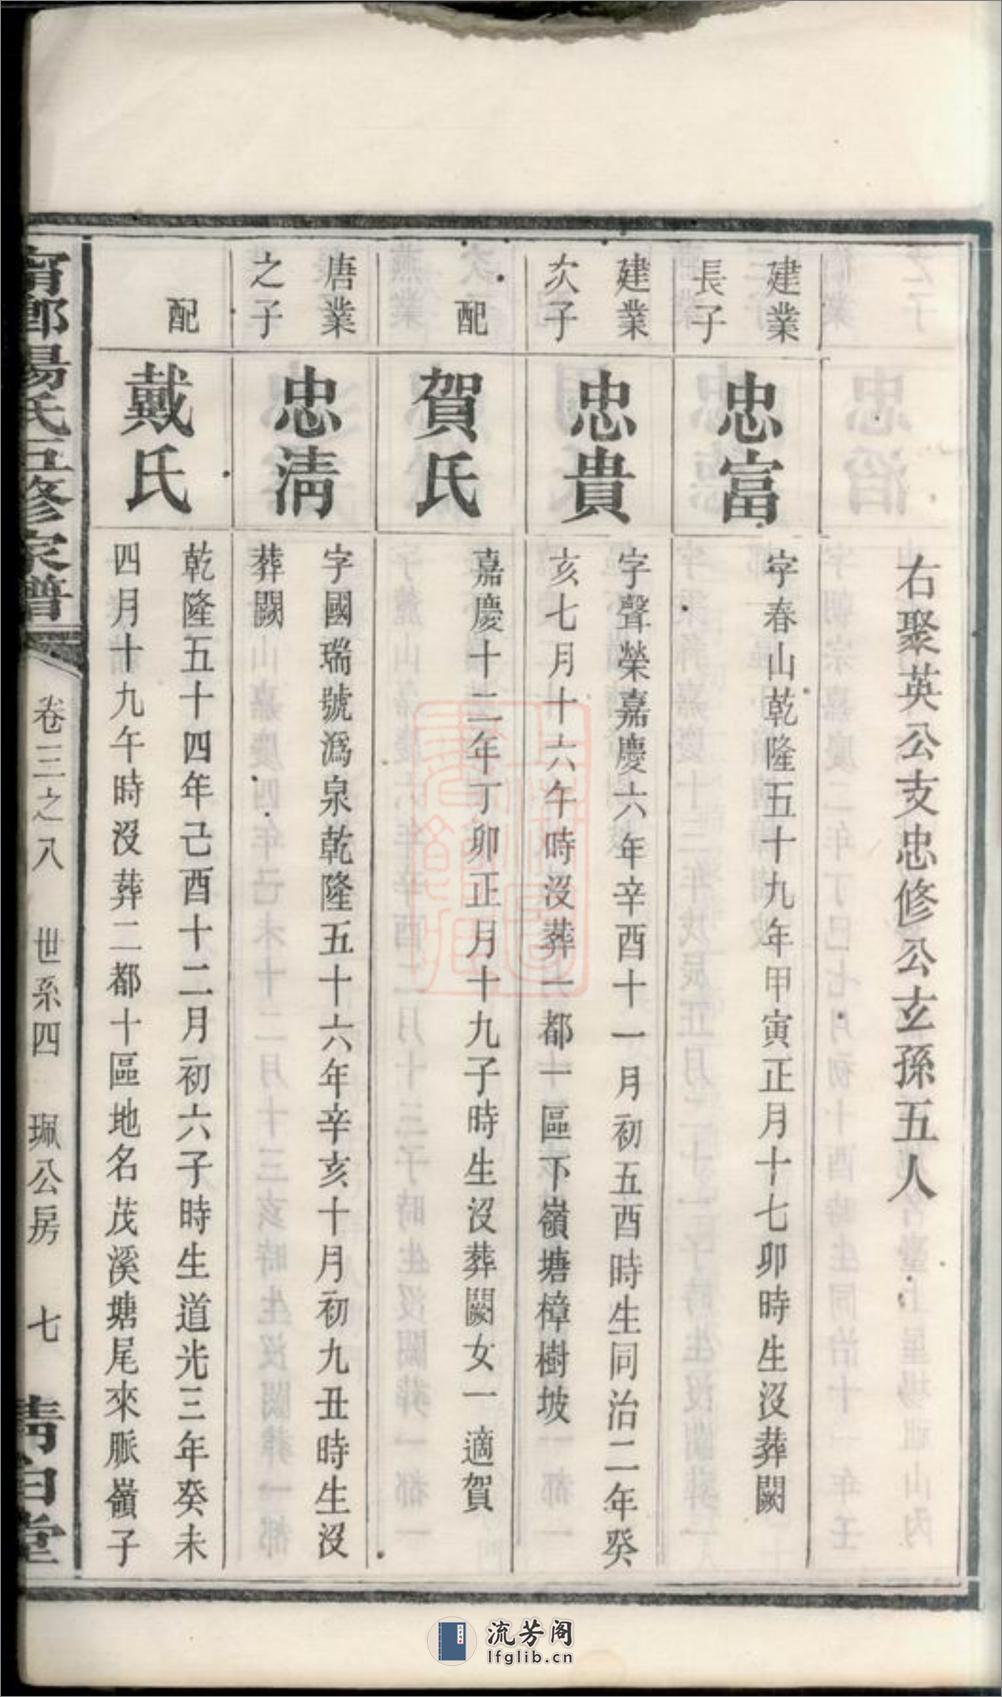 右聚英公支忠修公玄孫五人
建業
長子
忠富
字春山乾隆五十九年甲寅正月十七卯時生沒葬闕
建業
次子
忠貴
字聲榮嘉慶六年辛酉十一月初五酉時生同治二年癸
亥七月十六午時沒葬一都一區下嶺塘樟樹坡
配
賀氏
嘉慶十二年丁卯正月十九子時生沒葬闕女一適賀
唐業
之子
忠清
字國瑞號溈泉乾隆五十六年辛亥十月初九丑時生沒
葬闕
配
戴氏
乾隆五十四年己酉十二月初六子時生道光三年癸未
四月十九午時沒葬二都十區地名茂溪塘尾來脈嶺子
甯鄉楊氏五修家譜
卷三之八 世系四 珮公房 七 清白堂
流芳阁
lfglib.cn